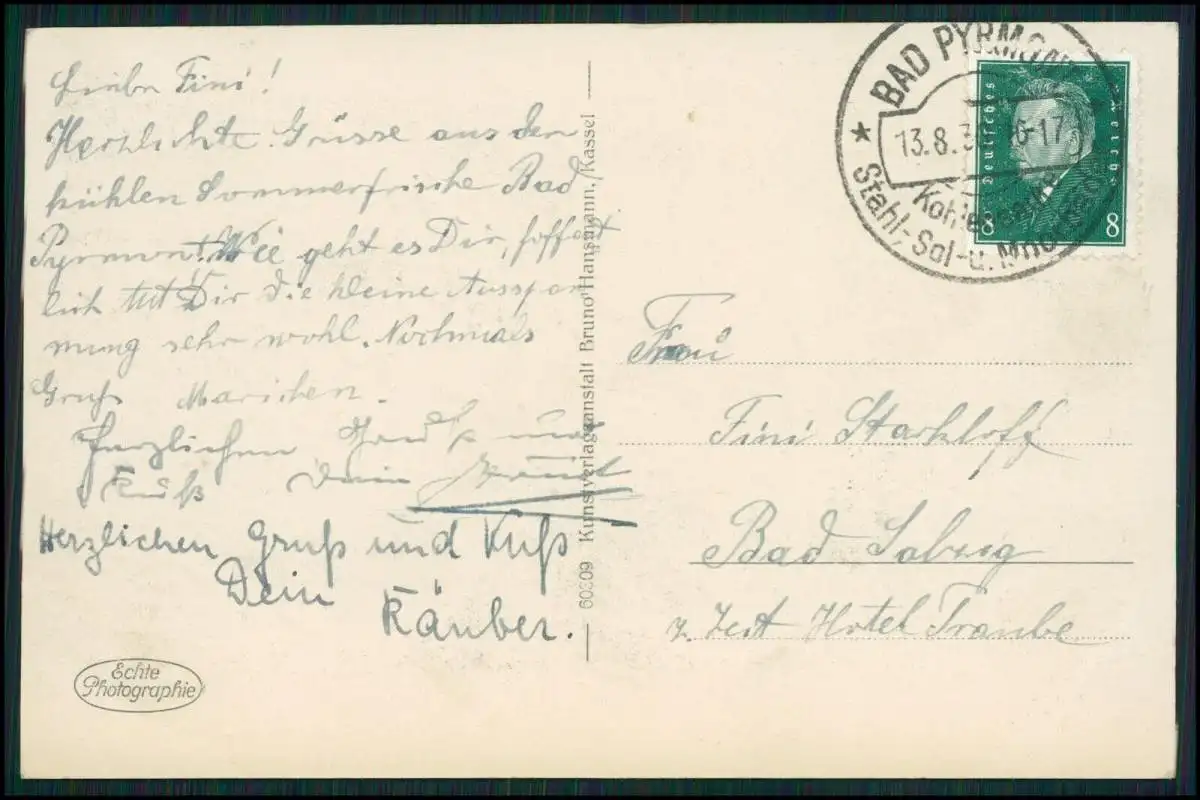 Liebe Fini!
Herzlichste Grüsse aus der
kühlen Sommerfrische Bad
Pyrmont. Wie geht es Dir, hoffent
lich tut Dir die kleine Ausspan
nung sehr wohl. Nochmals
Gruß Mariechen.
Herzlichen Gruß und
Kuß Dein
Herzlichen Gruß und Kuß
Dein
Räuber.
Echte
Photographie
60309 Kunstverlagsanstalt Bruno Hansmann, Kassel
BAD PYRMONT
13.8.3 16-17
Stahl-, Sol- u.
Deutsches Reich
8 8
Frau
Fini Starkloff
Bad Salzig
z. Zeit Hotel Traube